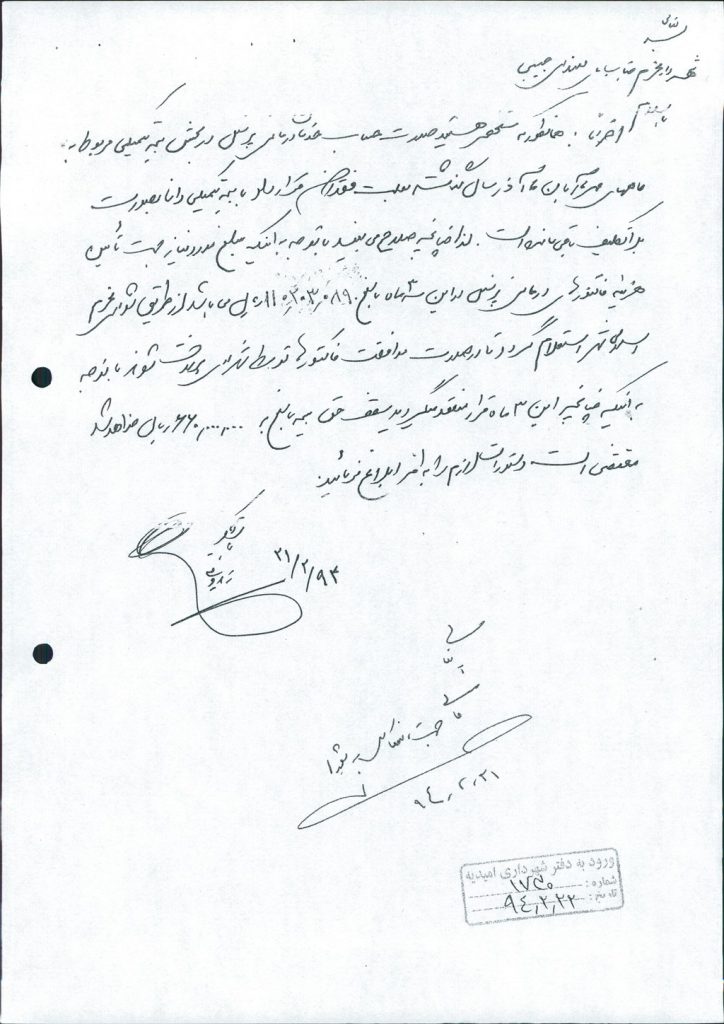 بسمه تعالی
شهردار محترم جناب آقای مهندس حبیبی
با سلام
احتراماً، همانطور که مستحضر هستید صورت حساب خدمات درمانی پرسنل در بخش بیمه تکمیلی مربوط به
ماههای مهر آبان آذر سال گذشته بعلت فقدان قرارداد با بیمه تکمیلی دانا بصورت
بلاتکلیف باقی مانده است. لذا چنانچه صلاح می دانید با توجه به اینکه مبلغ مورد نیاز جهت تأمین
هزینه فاکتورهای درمانی پرسنل در این ۳ ماه بالغ ۱۱۵,۲۰۳,۰۸۹ ریال می باشد از طریق شورای محترم
اسلامی شهر استعلام گردد تا در صورت موافقت فاکتورها توسط شهرداری پرداخت شوند با توجه
به اینکه چنانچه این ۳ ماه قرارداد منعقد میگردید سقف حق بیمه بالغ به ۶۶۰,۰۰۰,۰۰۰ ریال خواهد شد
مقتضی است دستورات لازم را به امر ابلاغ فرمائید.
با تشکر
۹۴/۲/۲۱
مالی
جهت انعکاس به شورا
۹۴,۲,۲۱
ورود به دفتر شهرداری امیدیه
شماره: ۱۷۵۰
تاریخ: ۹۴,۲,۲۲